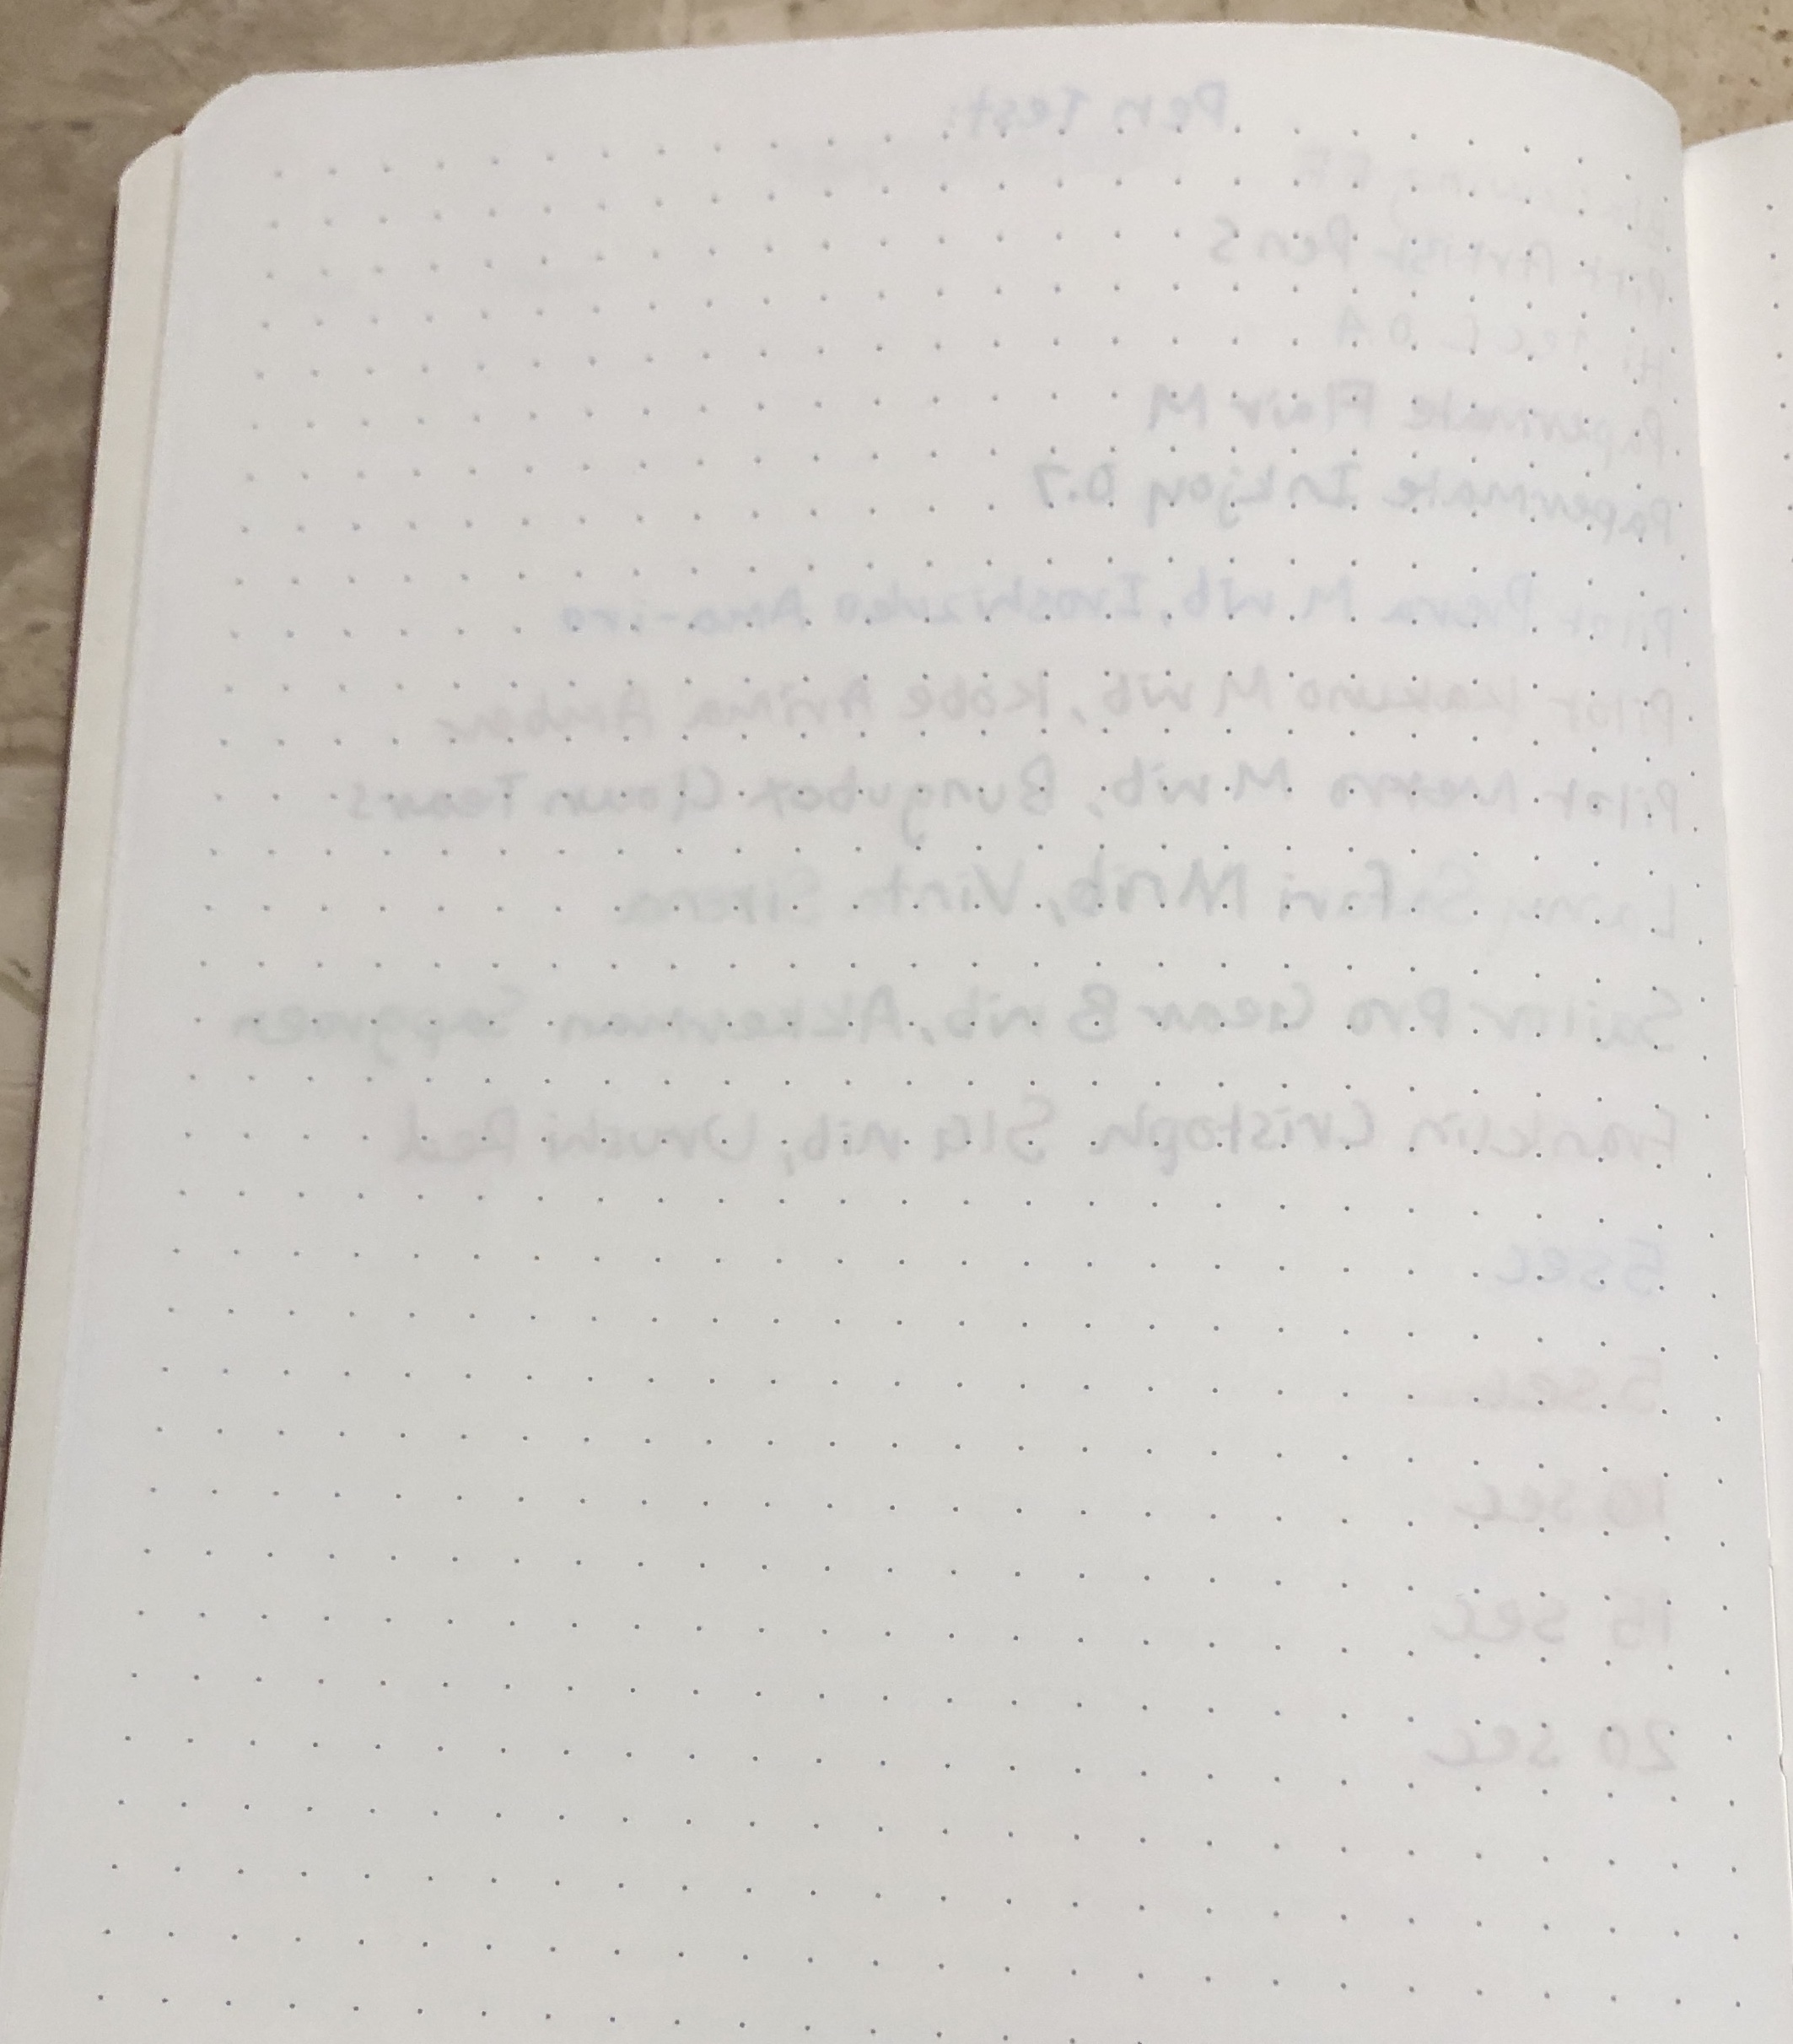 Pen Test:
Drawing EF
Pitt Artist Pen S
Hi-tec C 0.4
Papermate Flair M
Papermate Inkjoy 0.7
Pilot Prera M nib, Iroshizuku Ama-iro
Pilot Kakuno M nib, Kobe Arima Amber
Pilot Metro M nib, Bungubox Clown Tears
Lamy Safari M nib, Vinta Sirena
Sailor Pro Gear B nib, Akkerman Sapgroen
Franklin Cristoph SIG nib, Urushi Red
5 sec
5 sec
10 sec
15 sec
20 sec